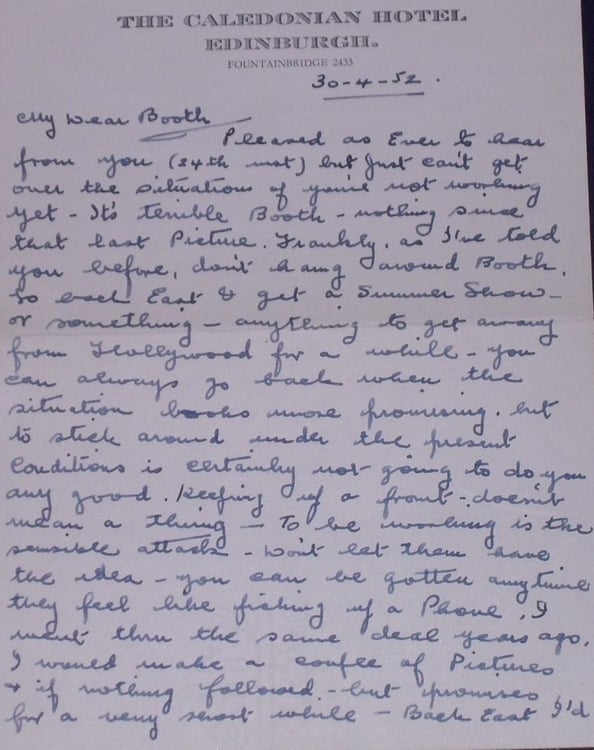 THE CALEDONIAN HOTEL
EDINBURGH.
FOUNTAINBRIDGE 2433
30-4-52.
My Dear Booth
Pleased as Ever to hear
from you (24th inst) but Just can't get
over the situations of you're not working
yet - It's terrible Booth - nothing since
that last Picture. Frankly, as I've told
you before, don't hang around Booth,
Go back East & get a Summer Show -
or something - anything to get away
from Hollywood for a while - you
can always go back when the
situation looks more promising. but
to stick around under the present
Conditions is certainly not going to do you
any good. Keeping up a front - doesn't
mean a thing - To be working is the
sensible attack - Don't let them have
the idea - you can be gotten anytime
they feel like picking up a Phone. I
went thru the same deal years ago.
I would make a couple of Pictures
& if nothing followed - but promises
for a very short while - Back East I'd